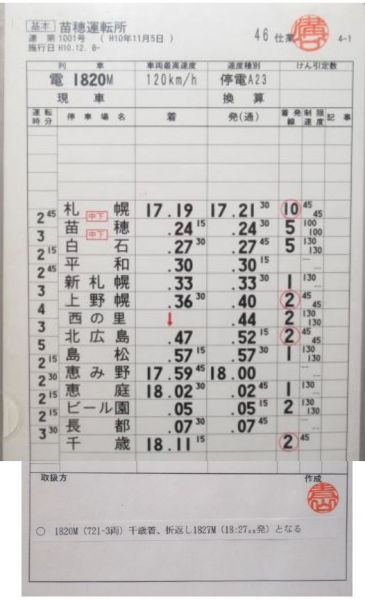 基本 苗穂運転所
運 第1001号 ( H10年11月5日 ) 46 仕業 4-1
施行日 H10.12.8-
列車 車両最高速度 速度種別 けん引定数
電 1820M 120km/h 停電A23
現車 換算
運転時分 停車場名 着 発(通) 着発線 制限速度 記事
札幌 17.19 17.21 30 10 45 45
2 45 中下
苗穂 .24 15 .24 30 5 100 100
3 中下
白石 .27 30 .27 45 5 130 130
2 15
平和 .30 .30 15
2 45
新札幌 .33 .33 30 1 130
3
上野幌 .36 30 .40 2 45 45
4
西の里 ↓ .44 2 130 130
3
北広島 .47 .52 15 2 45
5
島松 .57 15 .57 30 1 130
2 15
恵み野 17.59 45 18.00
2 30
恵庭 18.02 30 .02 45 1 130
2 15
ビール園 .05 .05 15 2 130
2 15
長都 .07 30 .07 45
3 30
千歳 18.11 15 2 45
取扱方 作成
○ 1820M (721-3両) 千歳着、折返し1827M (18:27 発) となる